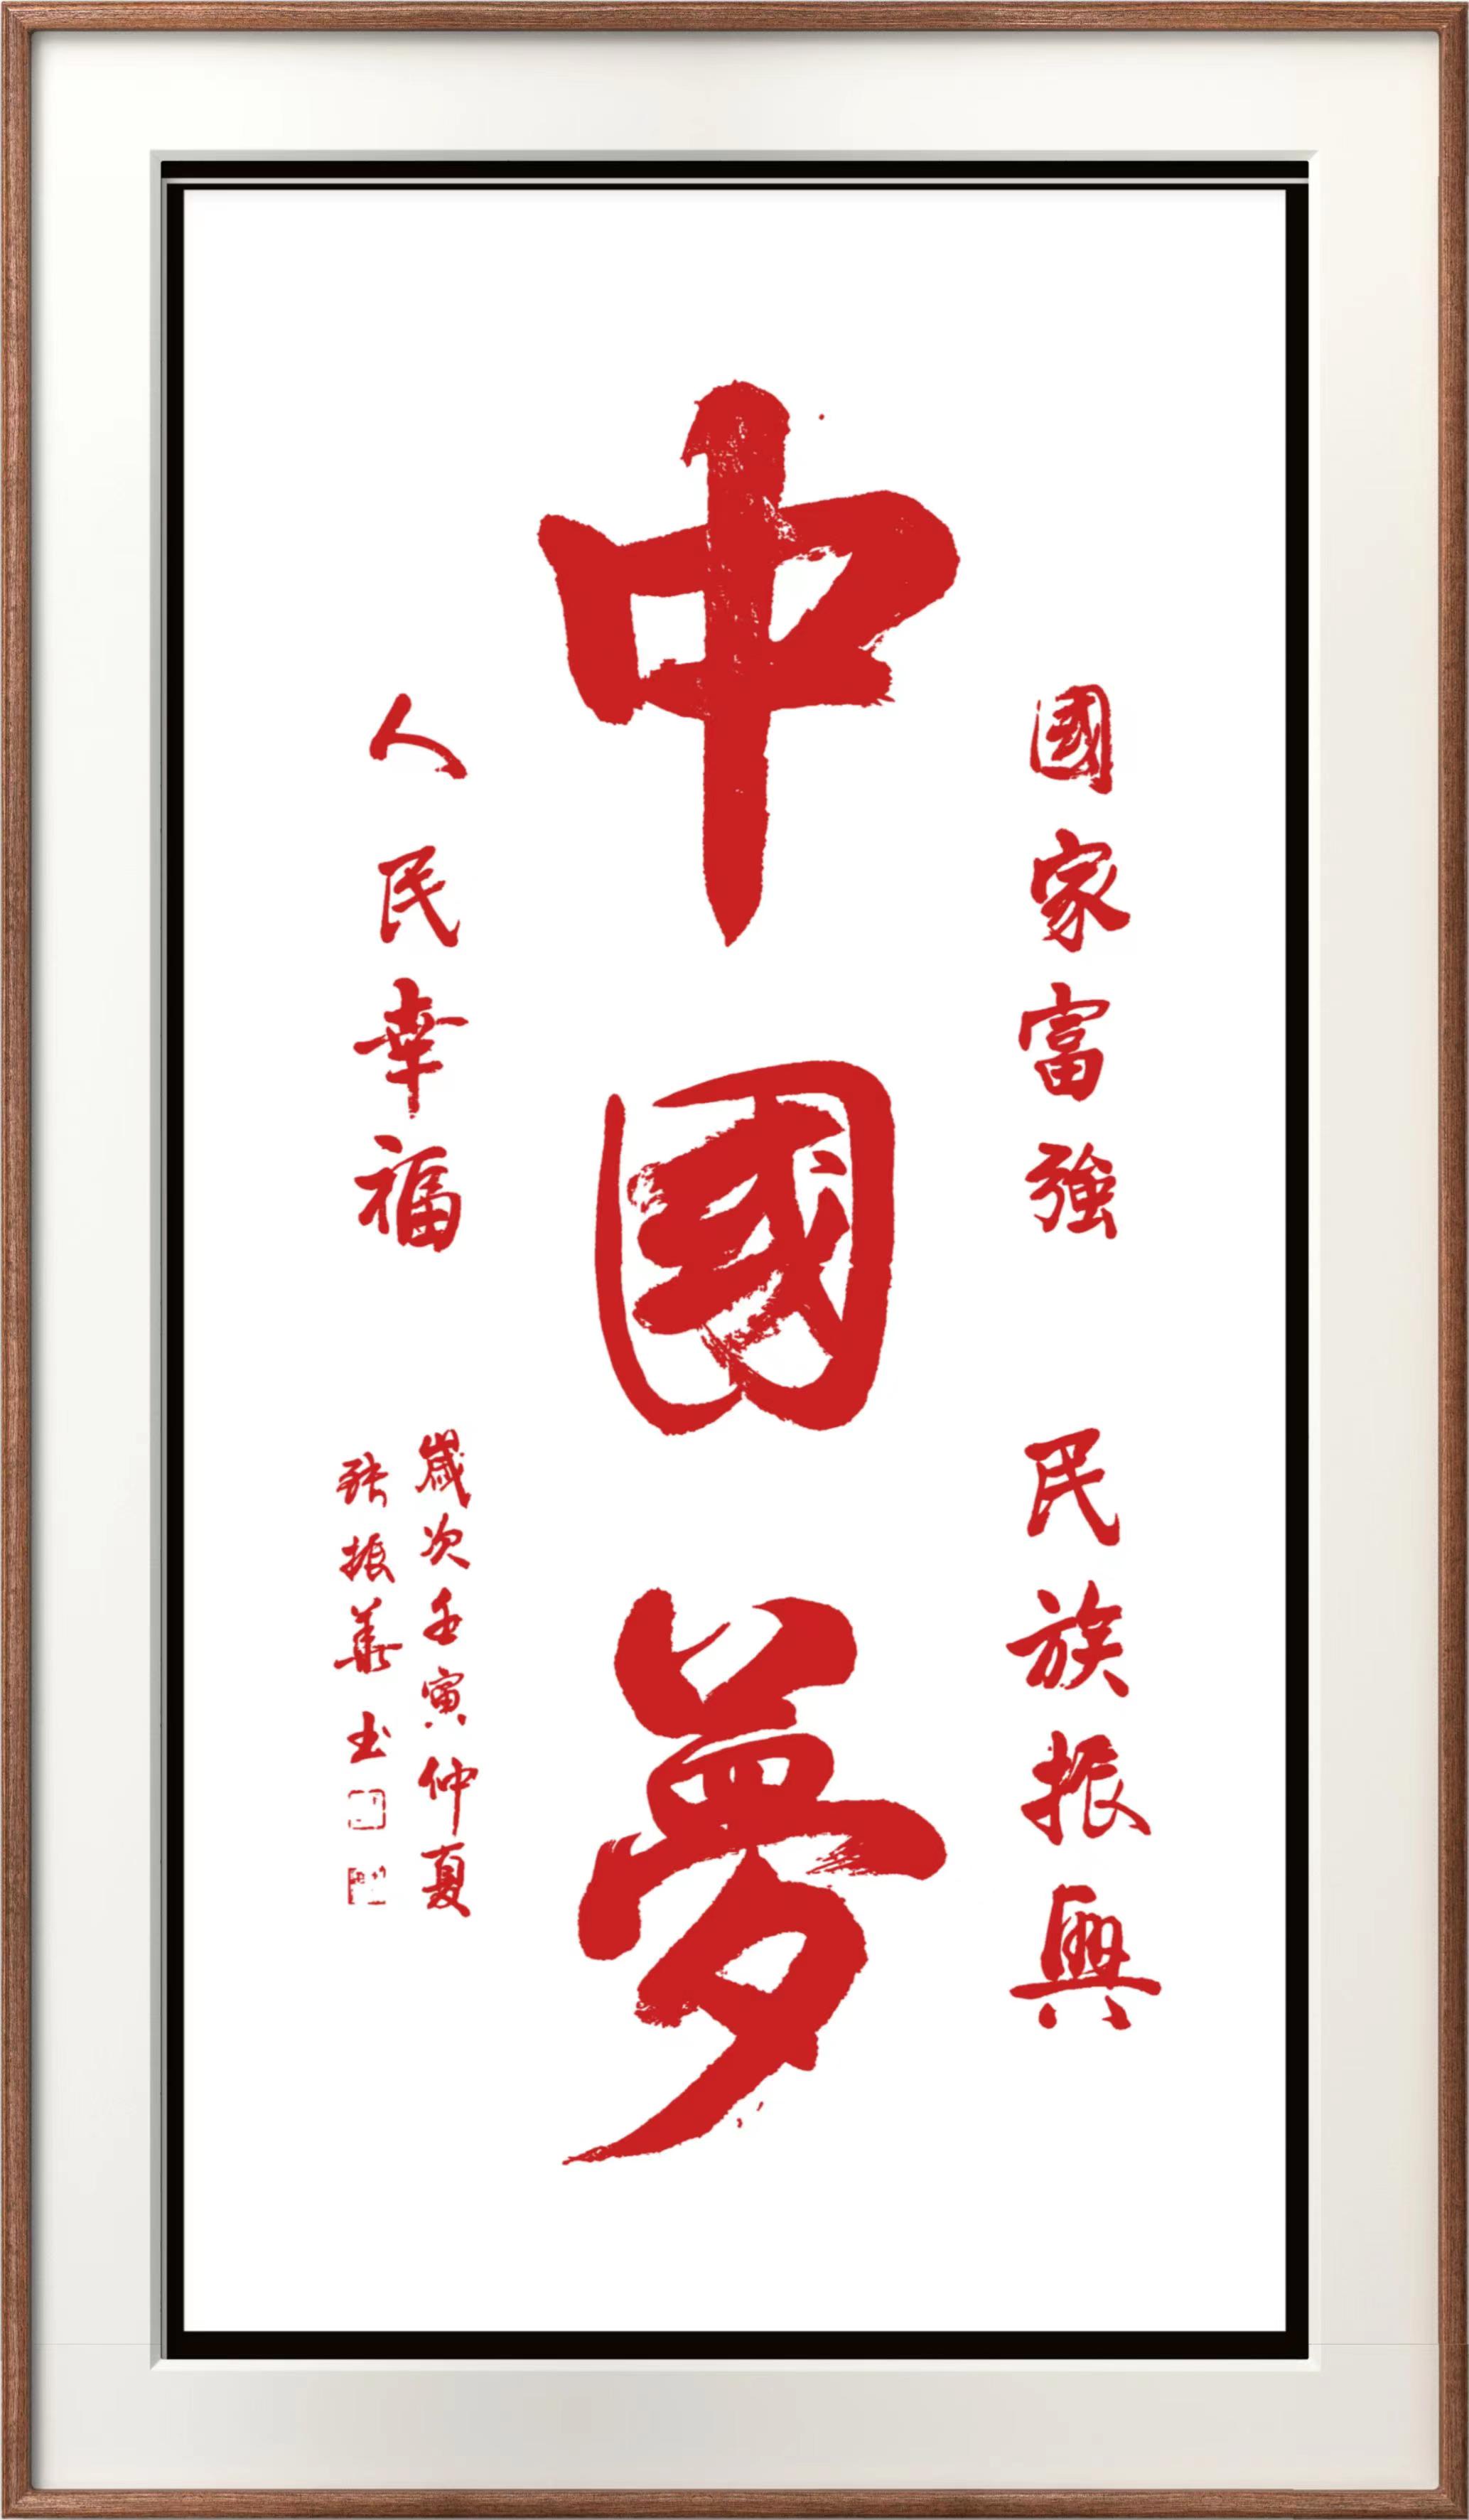 國家富強
民族振興
中國夢
人民幸福
歲次壬寅仲夏
張振華书